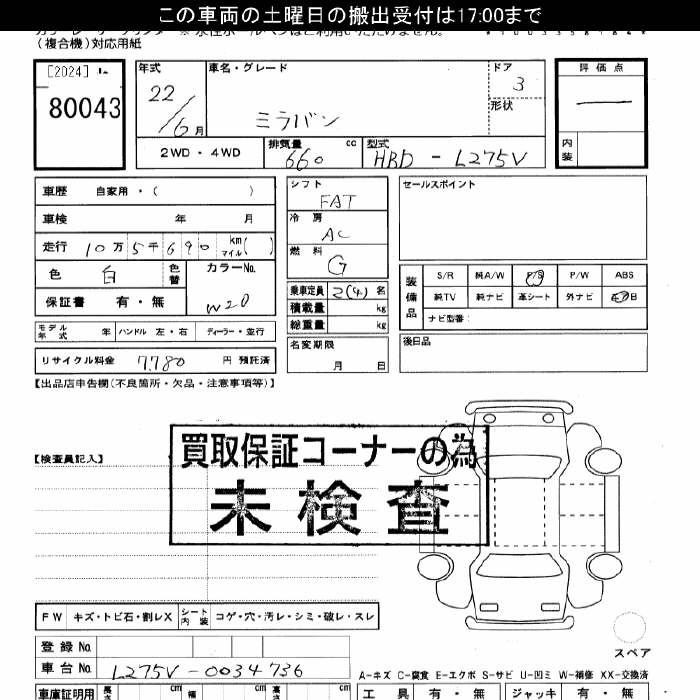 この車両の土曜日の搬出受付は17:00まで
(複合機)対応用紙
[2024]
80043
年式
22/6月
車名・グレード
ミラバン
ドア
3
形状
評価点
内装
2WD・4WD
排気量 660 cc
型式 HBD-L275V
車歴 自家用・( )
車検 年 月
走行 10万5千690 km マイル( )
色 白 色替
カラーNo. W20
保証書 有・無
モデル年式 年 ハンドル 左・右 ディーラー・並行
リサイクル料金 7780 円 預託済
シフト FAT
冷房 AC
燃料 G
乗車定員 2(4)名
積載量 kg
総重量 kg
名変期限
月 日
セールスポイント
装備品
S/R 純A/W P/S P/W ABS
純TV 純ナビ 革シート 外ナビ
ナビ型番:
後日品
【出品店申告欄(不良箇所・欠品・注意事項等)】
【検査員記入】
買取保証コーナーの為
未検査
FW キズ・トビ石・割レX シート内装 コゲ・穴・汚レ・シミ・破レ・スレ
登録No.
車台No. L275V-0034736
スペア
A-キズ C-腐食 E-エクボ S-サビ U-凹ミ W-補修 XX-交換済
車庫証明用 長さ cm 幅 cm 高さ cm
工具 有・無 ジャッキ 有・無